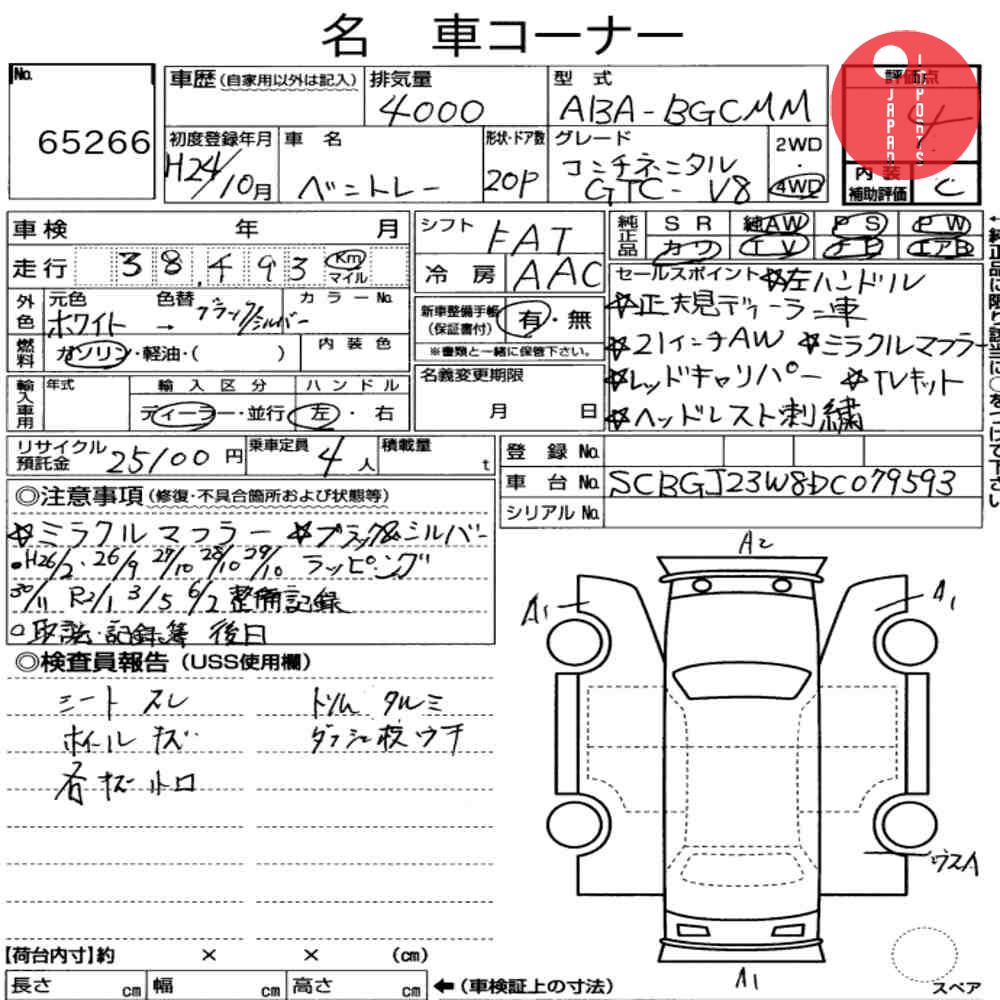 名 車コーナー
No. 65266
車歴(自家用以外は記入)
排気量 4000
型式 ABA-BGCMM
評価点 4
JAPAN IMPORTS
初度登録年月 H24/10月
車名 ベントレー
形状・ドア数 20P
グレード コンチネンタル GTC- V8
2WD・4WD
内装補助評価 C
車検 年 月
走行 38,493 Km マイル
シフト FAT
冷房 AAC
純正品 SR 純AW PS PW
カワ TV ナビ エアB
外色 元色 ホワイト → 色替 ブラック/シルバー カラーNo.
燃料 ガソリン・軽油・( ) 内装色
新車整備手帳(保証書付) 有・無
※書類と一緒に保管下さい。
輸入車用 年式 輸入区分 ディーラー・並行 ハンドル 左・右
名義変更期限 月 日
セールスポイント ☆左ハンドル
☆正規ディーラー車
☆21インチAW ☆ミラクルマフラー
☆レッドキャリパー ☆TVキット
☆ヘッドレスト刺繍
リサイクル預託金 25100円
乗車定員 4人
積載量 t
登録No.
車台No. SCBGJ23W8DC079593
シリアルNo.
◎注意事項(修復・不具合箇所および状態等)
☆ミラクルマフラー ☆ブラック&シルバー
・H26/2・26/9 27/10 28/10 29/10 ラッピング
30/11 R2/1 3/5 6/2 整備記録
○取説・記録簿 後日
◎検査員報告(USS使用欄)
シートスレ トリムタルミ
ホイールキズ ダッシュ板ウチ
各キズ小トロ
A2
A1 A1
ウスA
A1
スペア
【荷台内寸】約 × × (cm)
長さ cm 幅 cm 高さ cm ←(車検証上の寸法)